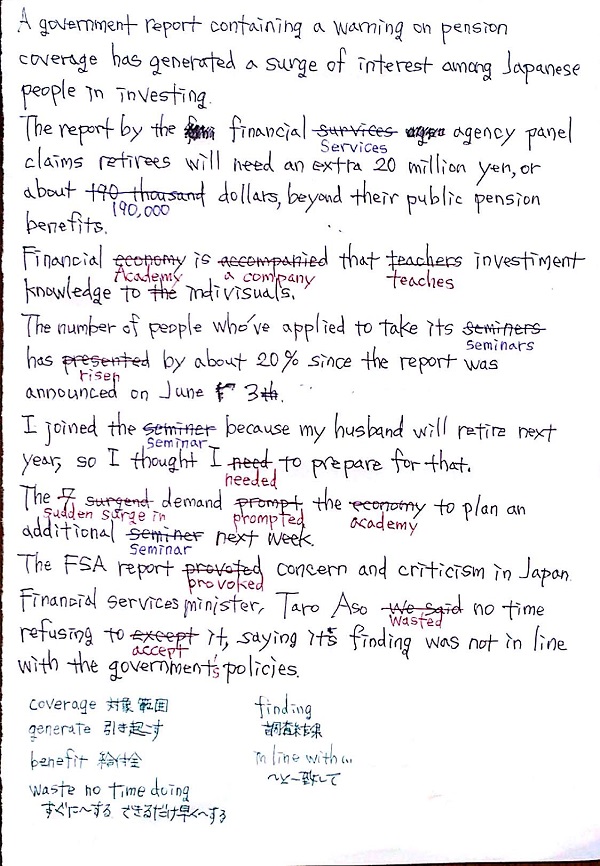 A government report containing a warning on pension
coverage has generated a surge of interest among Japanese
people in investing.
The report by the financial survices agency panel
Services
claims retirees will need an extra 20 million yen, or
about 190 thousand dollars, beyond their public pension
190,000
benefits.
Financial economy is accompanied that teachers investiment
Academy a company teaches
knowledge to the indivisuals.
The number of people who've applied to take its seminers
seminars
has presented by about 20% since the report was
risen
announced on June 3th.
I joined the seminer because my husband will retire next
seminar
year, so I thought I need to prepare for that.
needed
The surgend demand prompt the economy to plan an
sudden surge in prompted academy
additional seminer next week.
seminar
The FSA report provoted concern and criticism in Japan.
provoked
Financial services minister, Taro Aso We said no time
wasted
refusing to except it, saying it's finding was not in line
accept
with the government's policies.
coverage 対象範囲
generate 引き起こす
benefit 給付金
waste no time doing
すぐに〜する できるだけ早く〜する
finding
調査結果
in line with...
〜と一致して